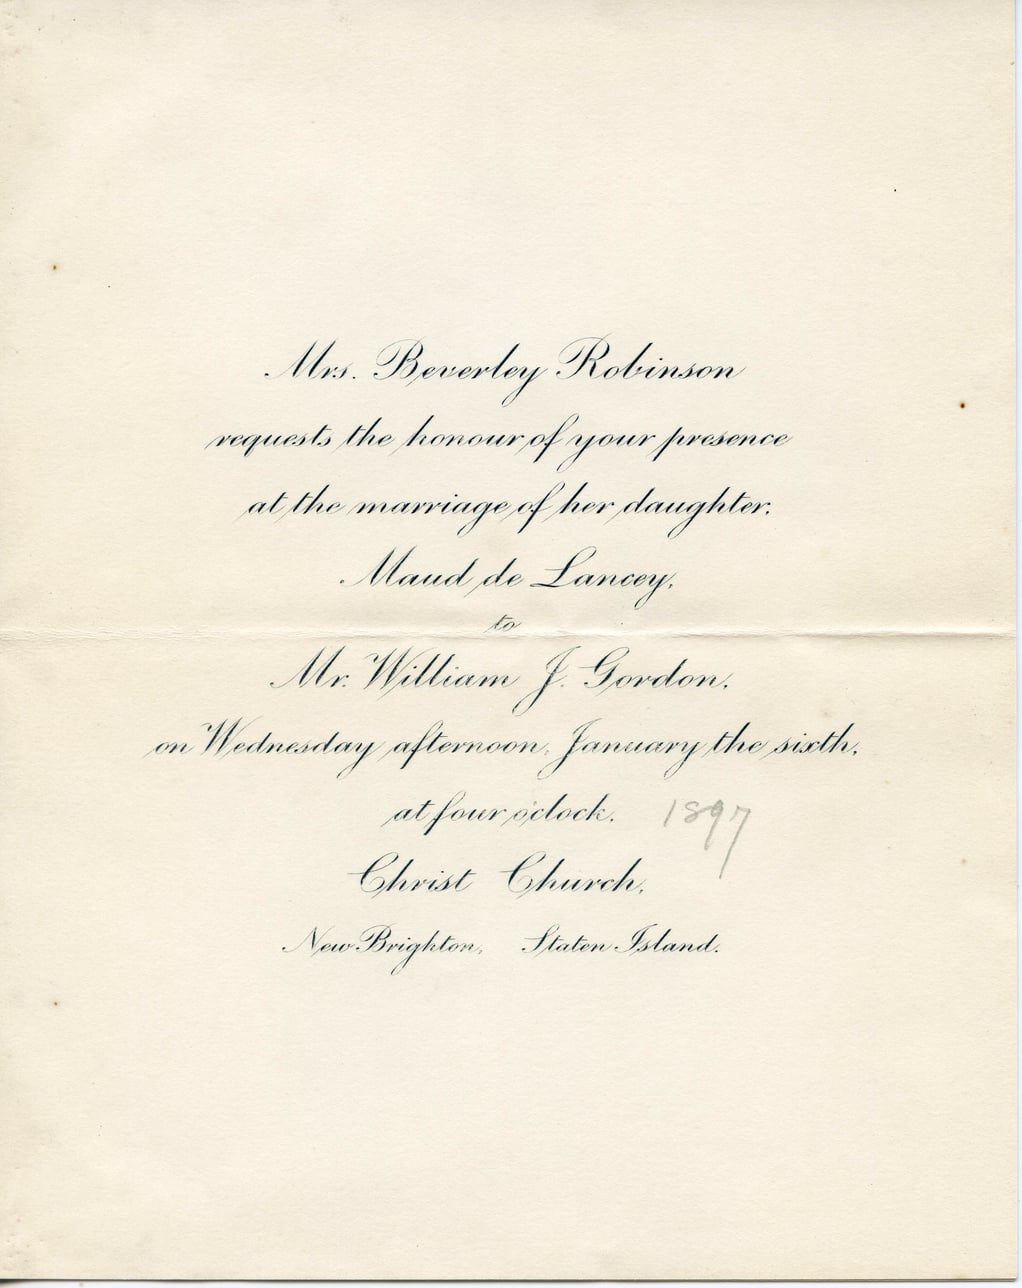 Mrs. Beverley Robinson
requests the honour of your presence
at the marriage of her daughter,
Maud de Lancey,
to
Mr. William J. Gordon,
on Wednesday afternoon, January the sixth,
at four o'clock. 1897
Christ Church,
New Brighton, Staten Island.